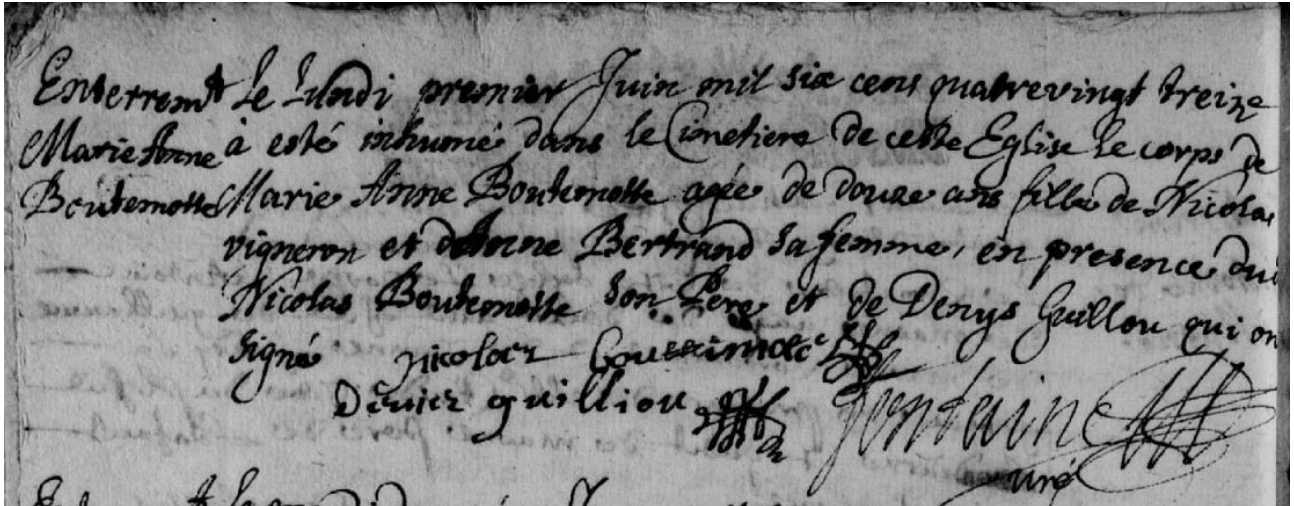 Enterremt Le Lundi premier Juin mil six cens quatrevingt treize
Marie Anne à esté inhumé dans le Cimetiere de cette Eglise Le corps de
Boutemotte Marie Anne Boutemotte agée de douze ans fille de Nicolas
vigneron et danne Bertrand sa femme, en presence dud
Nicolas Boutemotte son Pere et de Denys Guillou qui on
signé nicolas
guilliou fontaine
curé